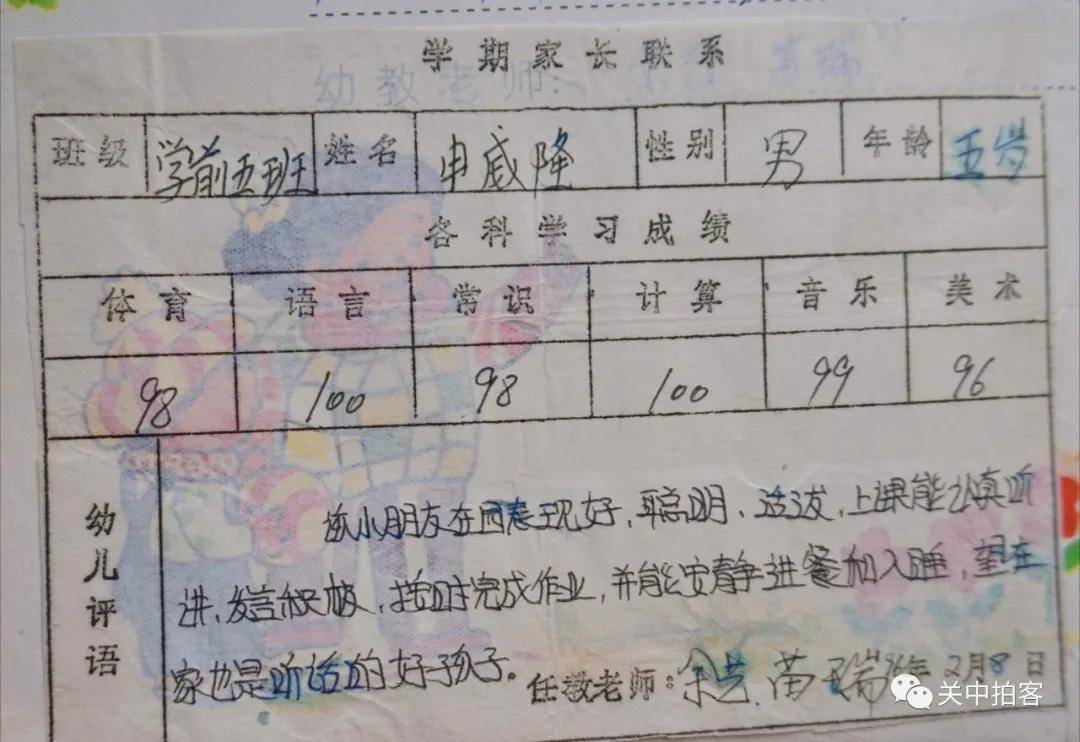 学期家长联系
幼教老师：
班级 学前五班 姓名 申威隆 性别 男 年龄 五岁
各科学习成绩
体育 语言 常识 计算 音乐 美术
98 100 98 100 99 96
幼儿评语
该小朋友在园表现好，聪明、活泼，上课能认真听
讲、发言积极，按时完成作业，并能安静进餐和入睡，望在
家也是听话的好孩子。
任教老师：余 苗瑞 年2月8日
关中拍客